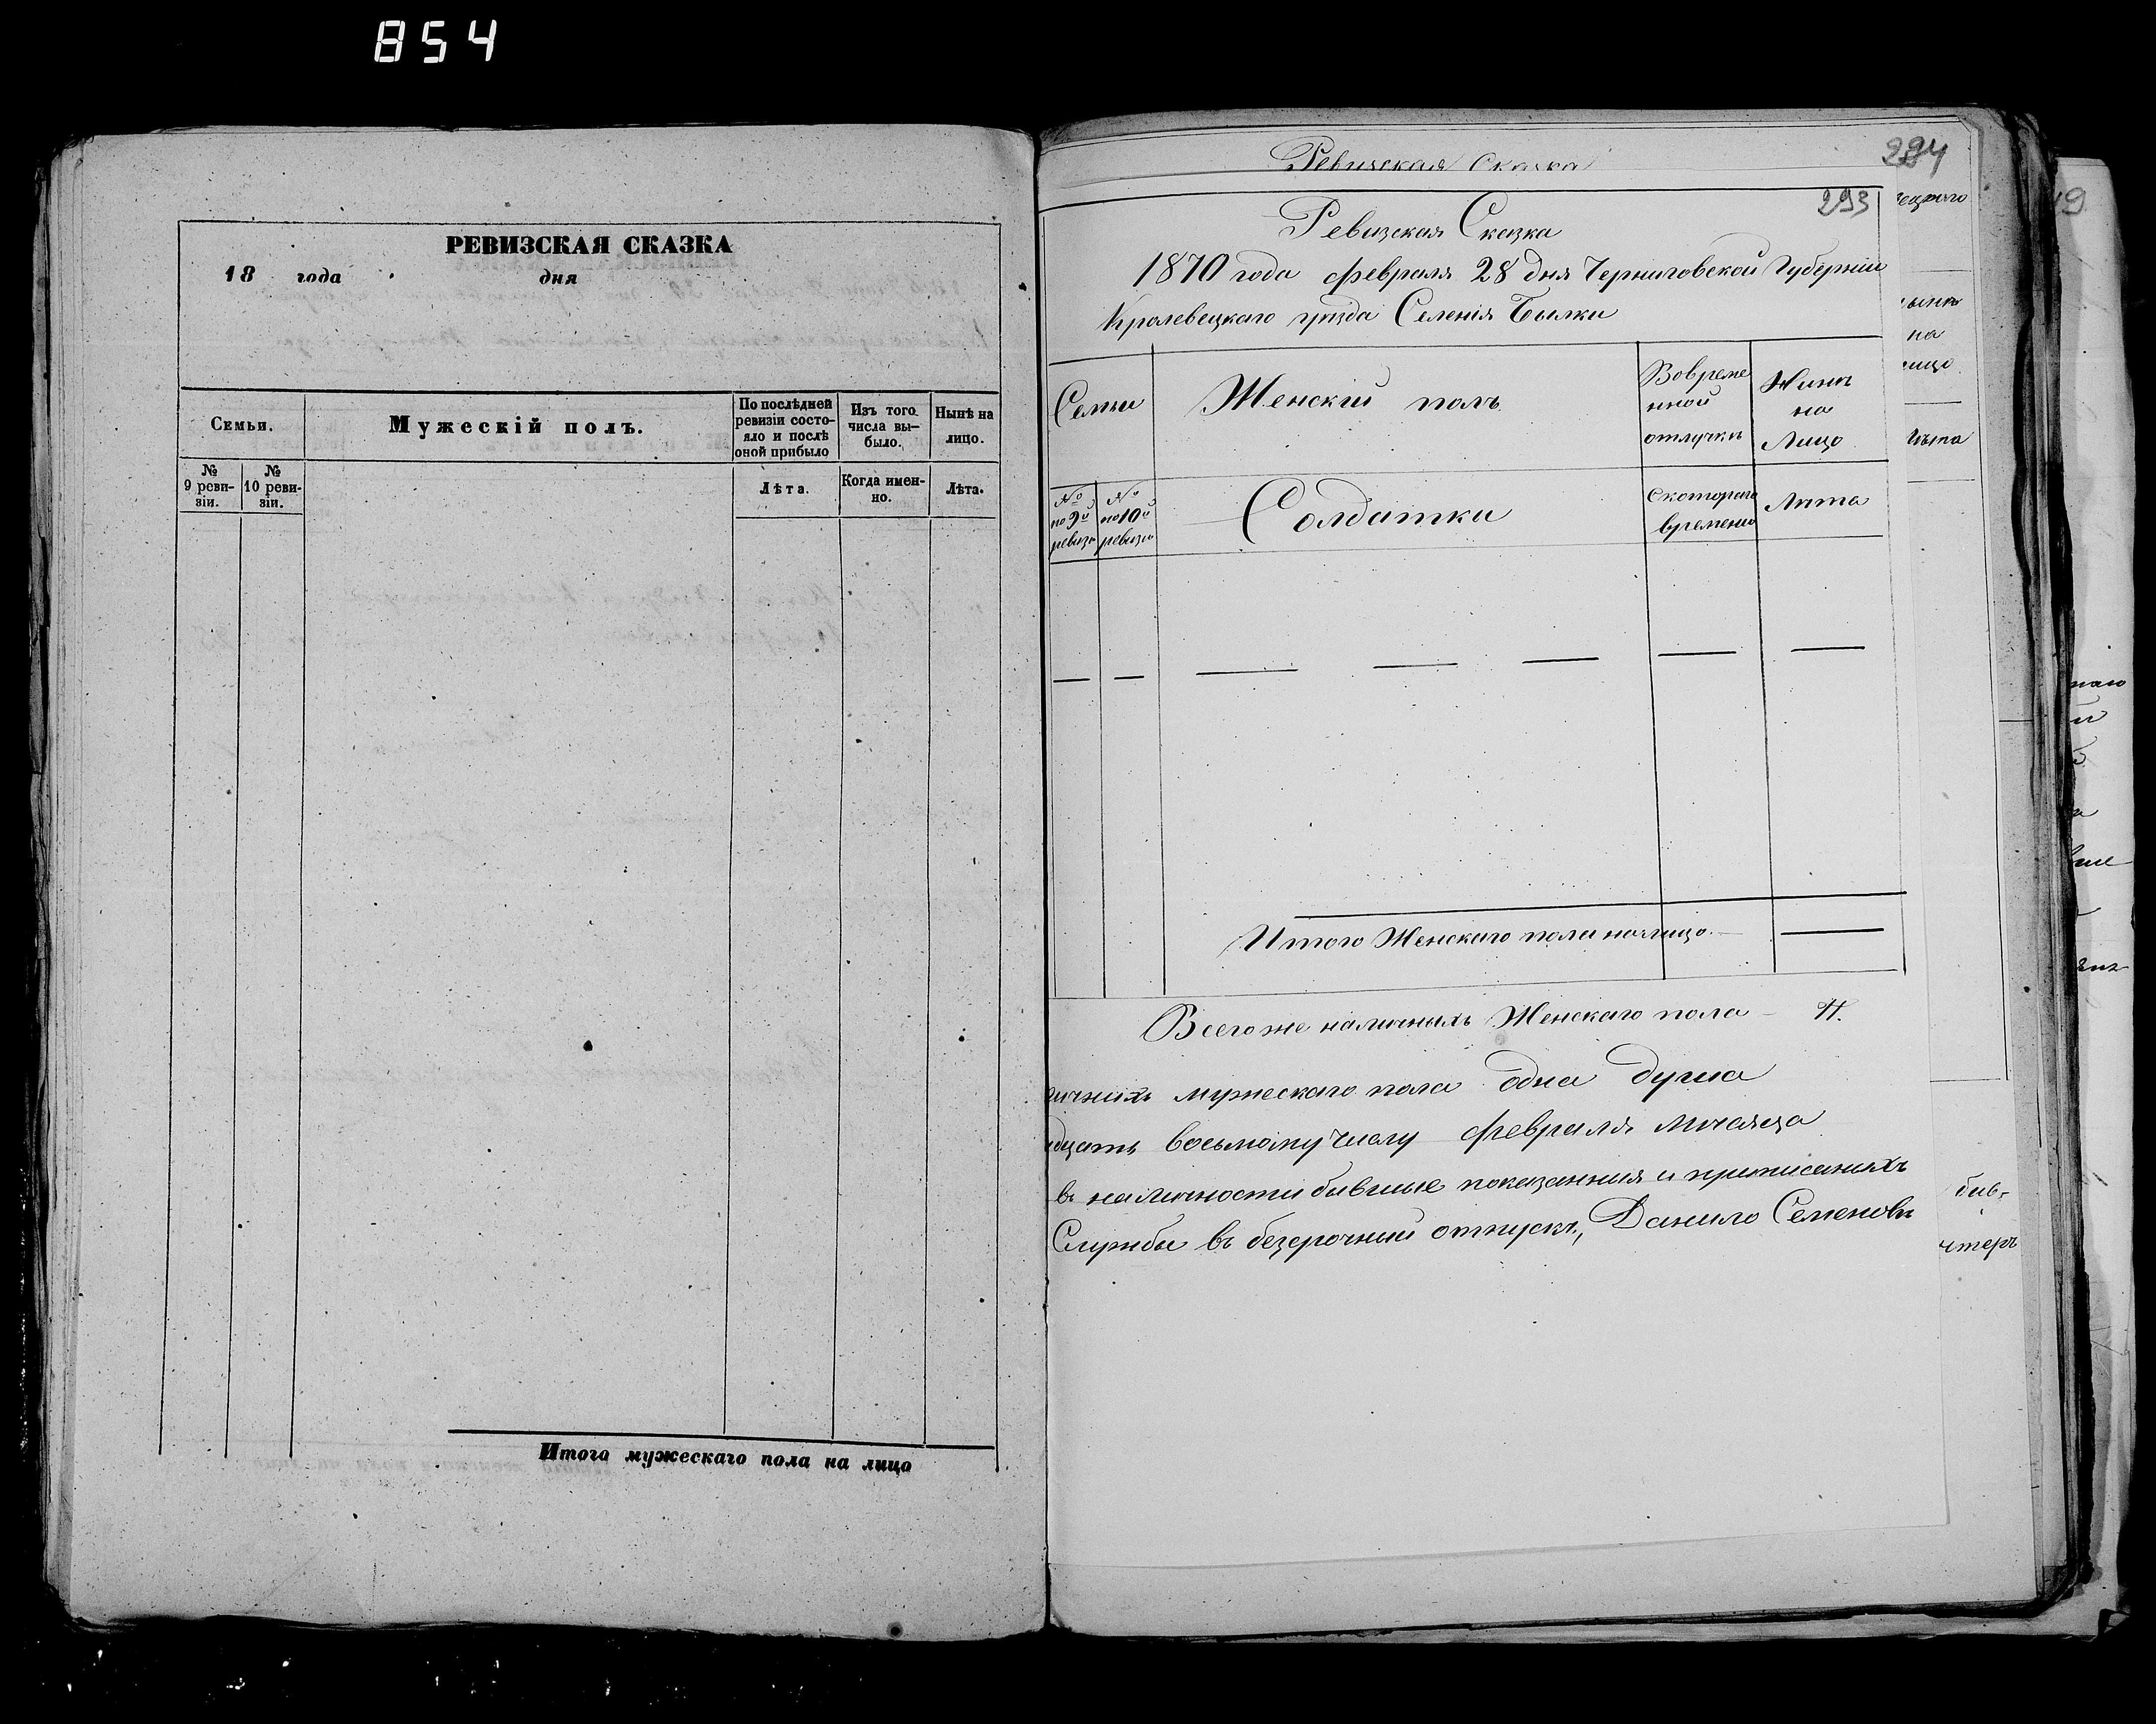 854
РЕВИЗСКАЯ СКАЗКА
18 года дня
Семьи.
Мужескій полъ.
По послѣдней ревизіи состо-
яло и послѣ
оной прибыло
Изъ того
числа вы-
было.
Нынѣ на
лицо.
№ 9 реви-
зіи.
№ 10 реви-
зіи.
Лѣта.
Когда имен-
но.
Лѣта.
Итого мужескаго пола на лицо
Ревизская Сказка
294
293
Ревизская Сказка
1870 года февраля 28 дня Черниговской Губерніи
Кролевецкаго уѣзда Селенія Былки
Семьи
Женскій полъ
Вовреме
нной
отлучкѣ
Нинѣ
на
Лицо
№
по 9й
ревизи
№
по 10й
ревизи
Солдатки
Скотораго
времени
Лѣта
Итого Женскаго пола налицо
Всего же наличныхъ Женскаго пола
ичнихъ мужескаго пола одна душа
дцать восьмому числу февраля мѣсяца
въ наличности бившие показанния и приписанихъ
Службы въ безсрочный отпускъ, Данило Семеновъ
ецкаго
на
лицо
Лѣта
бив-